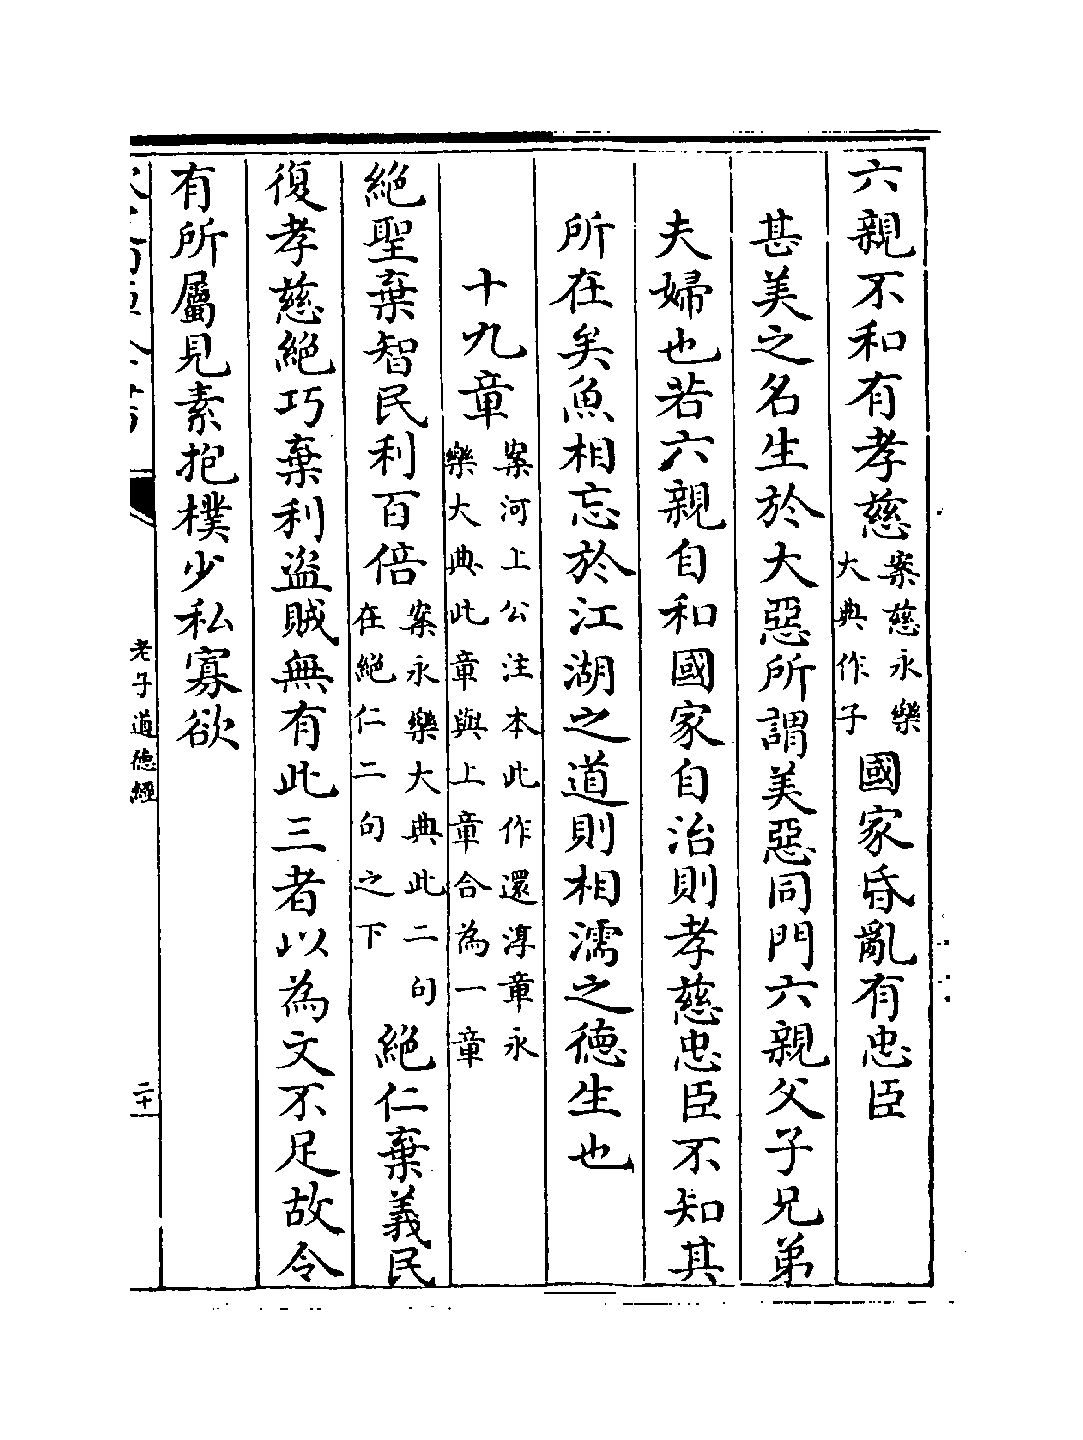 六親不和有孝慈案慈永樂大典作子國家昏亂有忠臣
甚美之名生於大惡所謂美惡同門六親父子兄弟
夫婦也若六親自和國家自治則孝慈忠臣不知其
所在矣魚相忘於江湖之道則相濡之德生也
十九章案河上公注本此作還淳章永樂大典此章與上章合為一章
絕聖棄智民利百倍案永樂大典此二句在絕仁二句之下絕仁棄義民
復孝慈絕巧棄利盜賊無有此三者以為文不足故令
有所屬見素抱樸少私寡欲
老子道德經
二十